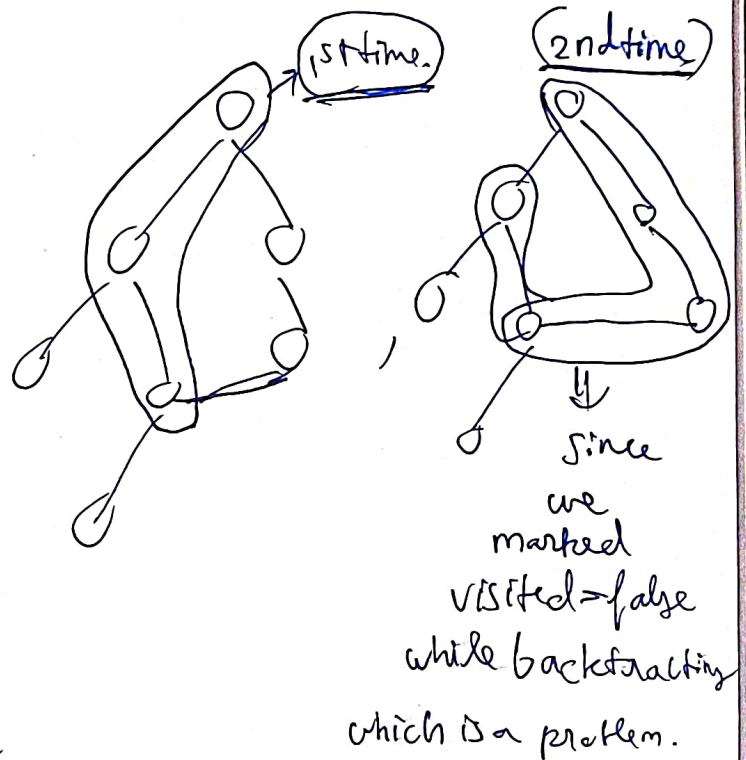 1st time.
2nd time
since
we
marked
visited=false
while backtracting
which is a problem.